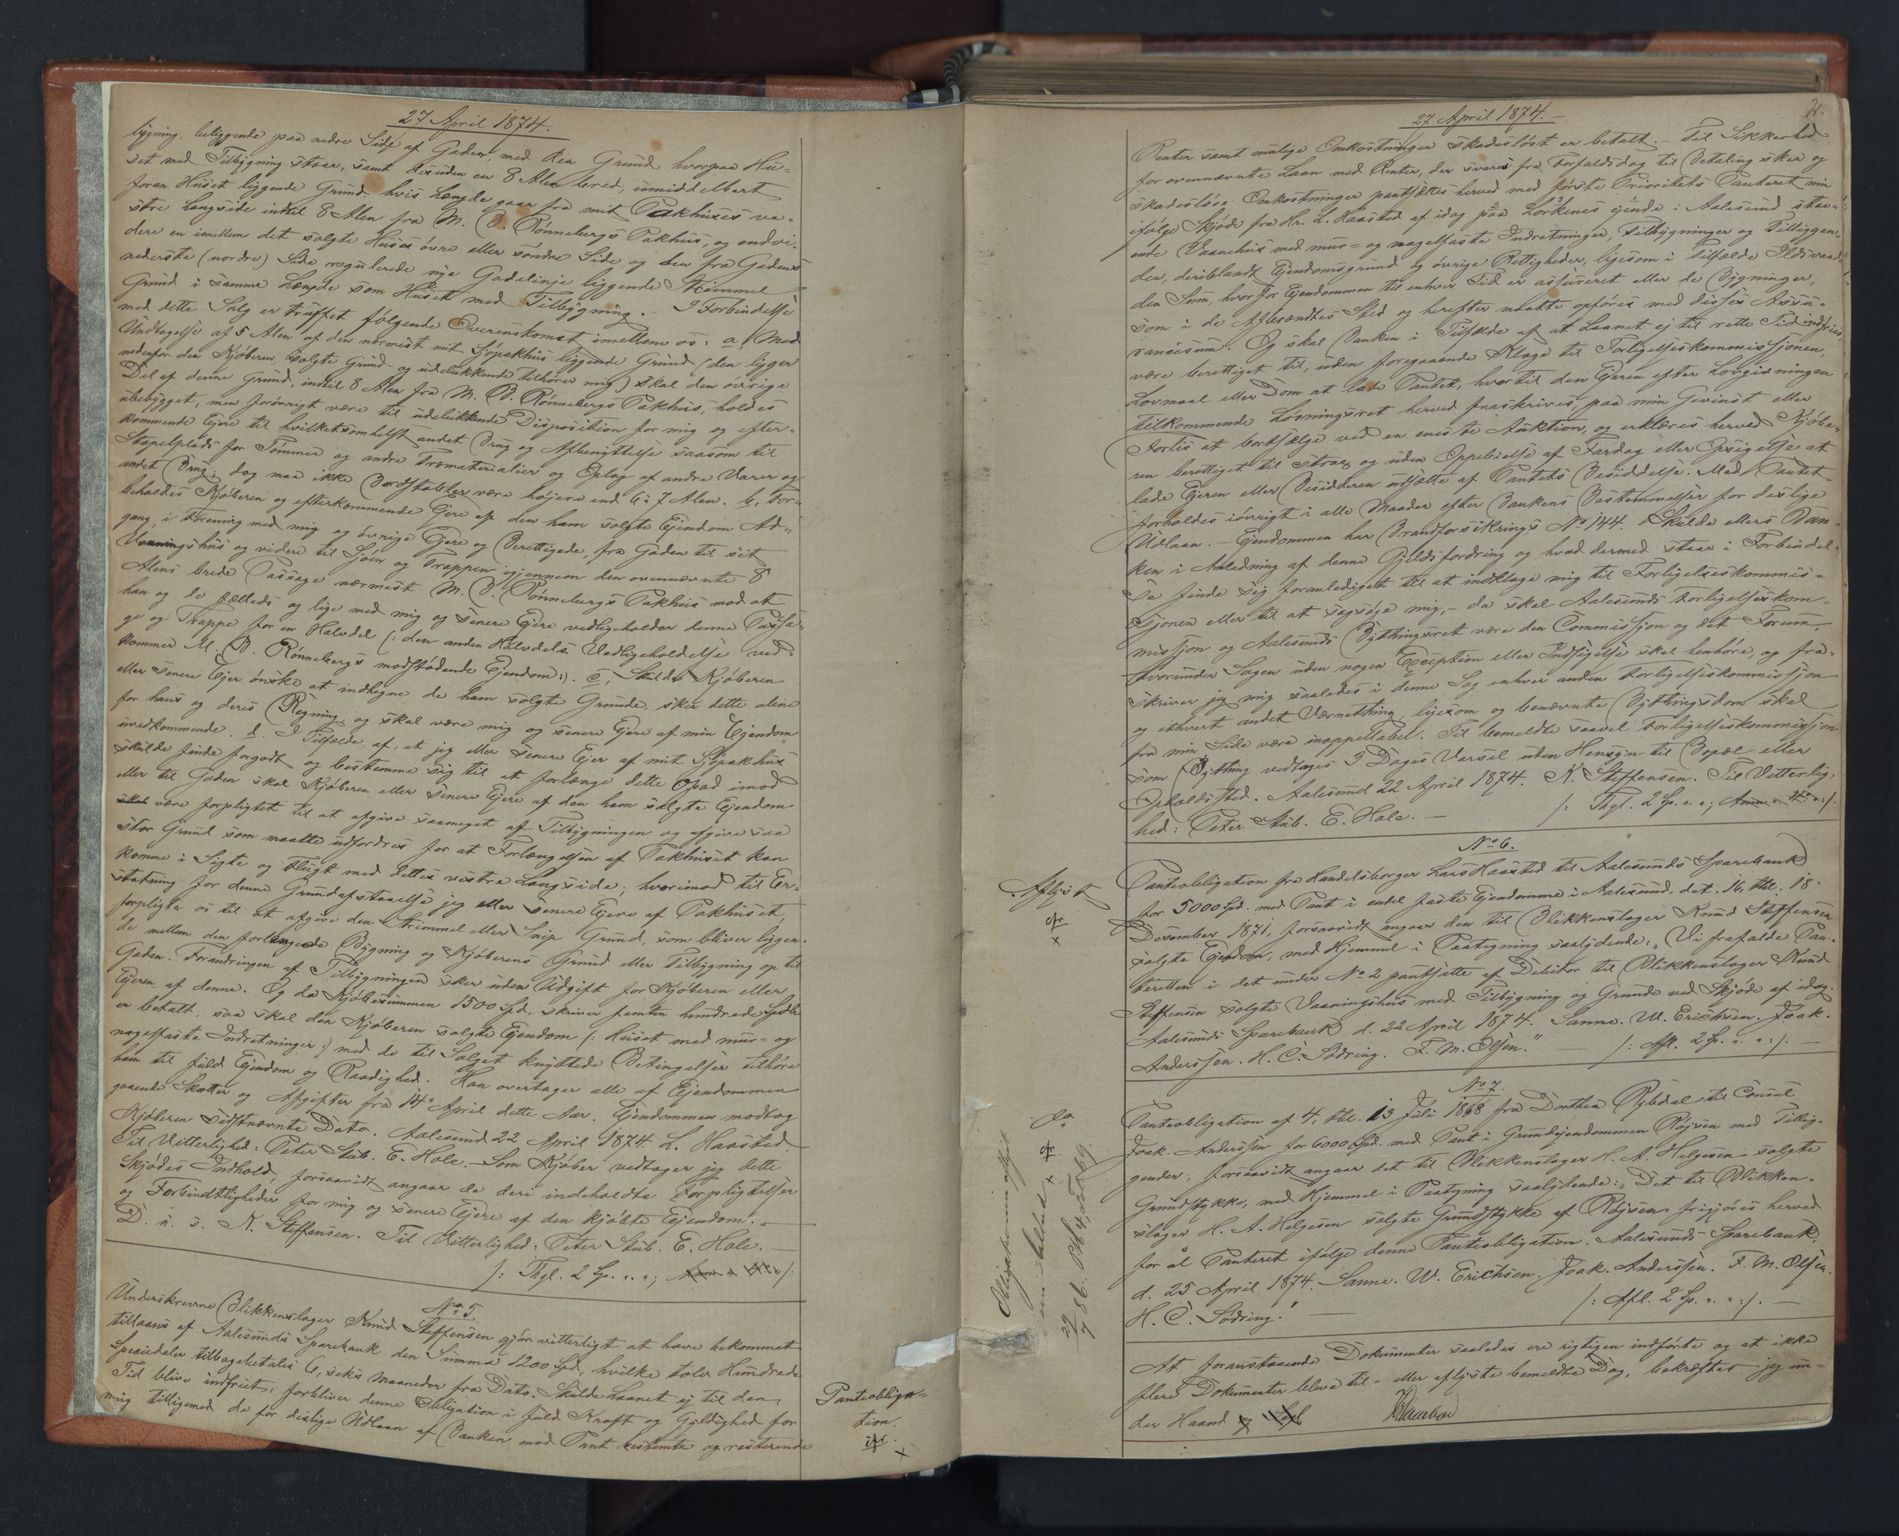 27 April 1874.
bygning, beliggende paa nedre Side af Gaden, med den Grund hvorpaa Hu-
set med Tilbygning staar, samt desuden en 8 Alen bred, umiddelbart
foran Huset liggende Grund hvis Længde gaar fra mit Pakhuses ve-
stre Langside indtil 8 Alen fra M. B. Rønnebergs Pakhus, og endvi-
dere en imellem det solgte Huses övre eller söndre Side og den fra Gadens
nederste (nordre) Side regulerede nye Gadelinje liggende Strimmel
Grund i samme Længde som Huset med Tilbygning. - I Forbindelse
med dette Salg er truffet følgende Overenskomst imellem os: a, Med
Undtagelse af 5 Alen af den nærmest mit Söpakhus liggende Grund (den ligger
nedenfor den Kjöberen solgte Grund og udelukkende tilhörer mig) skal den övrige
Del af denne Grund, indtil 8 Alen fra M. B. Rønnebergs Pakhus, holdes
ubebygget, men forövrigt være til udelukkende Disposition for mig og efter-
kommende Ejere til hvilketsomhelst andet Brug og Afbenyttelse saasom til
Stapelplads for Tömmer og andre Træmaterialier og Oplag af andre Varer og
andet Brug; dog maa ikke Bordstabler være höjere end 6 à 7 Alen. b, For-
beholdes Kjöberen og efterkommende Ejere af den ham solgte Ejendom Ad-
gang, i Forening med mig og övrige Ejere og Berettigede, fra Gaden til sit
Vaaningshus og videre til Söen og Trappen igjennem den ovennævnte 8
Alens brede Passage nærmest M. B. Rønnebergs Pakhus mod at
han og de fælleds og lige med mig og senere Ejere vedligeholder denne Passa-
ge og Trappe for en Halvdel (: den anden Halvdels Vedligeholdelse ved-
kommer M. B. Rønnebergs modstödende Ejendom:). c, Skulde Kjöberen
eller senere Ejer önske at indhegne de ham solgte Grunde, sker dette alene
for hans og deres Regning og skal være mig og senere Ejere af min Ejendom
uvedkommende. d, I Tilfælde af, at jeg eller senere Ejer af mit Söpakhus
skulde finde forgodt og bestemme sig til at forlænge dette opad imod
eller til Gaden skal Kjöberen eller senere Ejere af den ham solgte Ejendom
skal være forpligtet til at afgive saameget af Tilbygningen og afgive saa
stor Grund som maatte udfordres for at Forlængelsen af Pakhuset kan
komme i Sigte og Flugt med dettes vestre Langside; hvorimod til Er-
statning for denne Grundafstaaelse jeg eller senere Ejere af Pakhuset,
forpligte os til at afgive den Strimmel eller Snip Grund, som bliver liggen-
de mellem den forlængede Bygning og Kjöberens Grund eller Tilbygning op til
Gaden. Forandringen af Tilbygningen sker uden Udgift for Kjöberen eller
Ejeren af denne. Og da Kjöbesummen 1500 Spd. skriver femten hundrede Spdlr
er betalt, saa skal den Kjöberen solgte Ejendom (: Huset med mur- og
nagelfaste Indretninger:) med de til Salget knyttede Betingelser tilhöre
ham til fuld Ejendom og Raadighed. Han overtager alle af Ejendommen
gaaende Skatter og Afgifter fra 14de April dette Aar. Ejendommen modtog
Kjöberen sidstnævnte Dato. Aalesund 22 April 1874. L. Haasted.
Til Vitterlighed: Peter Stub. E. Hole. - Som Kjöber vedtager jeg dette
Skjödes Indhold, forsaavidt angaar de deri indeholdte Forpligtelser
og Forbindtligheder for mig og senere Ejere af den kjöbte Ejendom. -
D. u. s. K. Steffensen. Til Vitterlighed: Peter Stub. E. Hole. -
/: Thgl. 2 Sp. " " ;
No 5.
Underskrevne Blikkenslager Knud Steffensen gjör vitterligt at have bekommet
tillaans af Aalesunds Sparebank den Summa 1200 Spd, hvilke tolv Hundrede
Speciedaler tilbagebetales 6, seks Maaneder fra Dato. Skulde Laanet ej til den
Tid blive indfriet, forbliver denne Obligation i fuld Kraft og Gyldighed for
mig tilligemed de for deslige Udlaan af Banken mod Pant bestemte og resterende
Pantobliga-
tion.
27 April 1874. -
Renter samt mulige Omkostninger skadeslöst er betalt. - Til Sikkerhed
for ovennævnte Laan med Renter, der svares fra Forfaldsdag til Betaling sker og
skadeslöse Omkostninger pantsættes herved med förste Prioritets Panteret min
ifölge Skjöde fra Hr. L. Haasted af idag paa Lorkenes ejende i Aalesund staa-
ende Vaanehus med mur- og nagelfaste Indretninger, Tilbygninger og Tilliggen-
der, deriblandt Ejendomsgrund og övrige Rettigheder, ligesom i Tilfælde Ildsvaade
den Sum, hvorfor Ejendommen til enhver Tid er assureret eller de Bygninger,
som i de Afbrændtes Sted og herefter maatte opföres med disses Assu-
ranceSum. Og skal Banken i Tilfælde af at Laanet ej til rette Tid indfries,
være berettiget til, uden foregaaende Klage til Forligelseskommissjonen,
Lovmaal eller Dom at lade Pantet, hvortil den Ejeren efter Lovgivningen
tilkommende Lösningsret herved fraskrives, paa min Gevinst eller
Forlis at bortsælge ved en eneste Auktion, og erklæres herved Kjöbe-
ren berettiget til strax og uden Oppebielse af Fardag eller Opsigelse at
lade Ejeren eller Besidderen udsætte af Pantets Besiddelse. Med Pantet
forholdes iövrigt i alle Maader efter Bankens Bestemmelser for deslige
Udlaan. - Ejendommen har Brandforsikrings No 144. Skulde ellers Ban-
ken i Anledning af denne Gjeldsfordring og hvad dermed staar i Forbindel-
se finde sig foranlediget til at indklage mig til Forligelseskommis-
sjonen eller til at sagsöge mig, - da skal Aalesunds Forligelseskom-
missjon og Aalesunds Bythingsret være den Commissjon og det Forum,
hvorunder Sagen uden nogen Exception eller Indsigelse skal henhöre, og fra-
skriver jeg mig saaledes i denne Sag enhver anden Forligelseskommissjon
og ethvert andet Værnething, ligesom og benævnte Bythingsdom skal
fra min Side være inappellabel. Til bemeldte saavel Forligelseskommissjon
som Bything vedtages 3 Dages Varsel uden Hensyn til Bopæl eller
Opholdssted. Aalesund 22 April 1874. K. Steffensen. Til Vitterlig-
hed: Peter Stub. E. Hole. - /: Thgl. 2 Sp. " " ;
No 6.
Pantobligation fra Handelsborger Lars Haasted til Aalesunds Sparebank
for 5000 Spd. med Pant i endel faste Ejendomme i Aalesund, dat. 16, thl. 18
December 1871, forsaavidt angaar den til Blikkenslager Knud Steffensen
solgte Ejendom, med Hjemmel i Paategning saalydende: "Vi frafalde Pan-
teretten i det under No 2 pantsatte af Debitor til Blikkenslager Knud
Steffensen solgte Vaaningshus med Tilbygning og Grunde ved Skjöde af idag.
Aalesunds Sparebank d. 22 April 1874. Sanne. W. Erichsen. Joak.
Anderssen. H. C. Södring. F. M. Olsen." - /: Afl. 2 Sp. " " :/. -
Aflyst
No 7.
Pantobligation af 4, thl. 13 Juli 1868 fra Dorthea Rÿsdal til Consul
Joak. Anderssen for 6000 Spd. med Pant i Grundejendommen Röysen med Tillig-
gender, forsaavidt angaar det til Blikkenslager H. A. Helgesen solgte
Grundstykke, med Hjemmel i Paategning saalydende: "Det til Blikken-
slager H. A. Helgesen solgte Grundstykke af Röysen frigjöres herved
for al Panteret ifölge denne Pantobligation. Aalesunds Sparebank
d. 25 April 1874. Sanne. W. Erichsen. Joak. Anderssen. F. M. Olsen.
H. C. Södring." - /: Afl. 2 Sp. " " :/. -
Do
At foranstaaende Dokumenter saaledes ere rigtigen indförte og at ikke
flere Dokumenter bleve til- eller aflyste bemeldte Dag, bekræfter jeg un-
der Haand